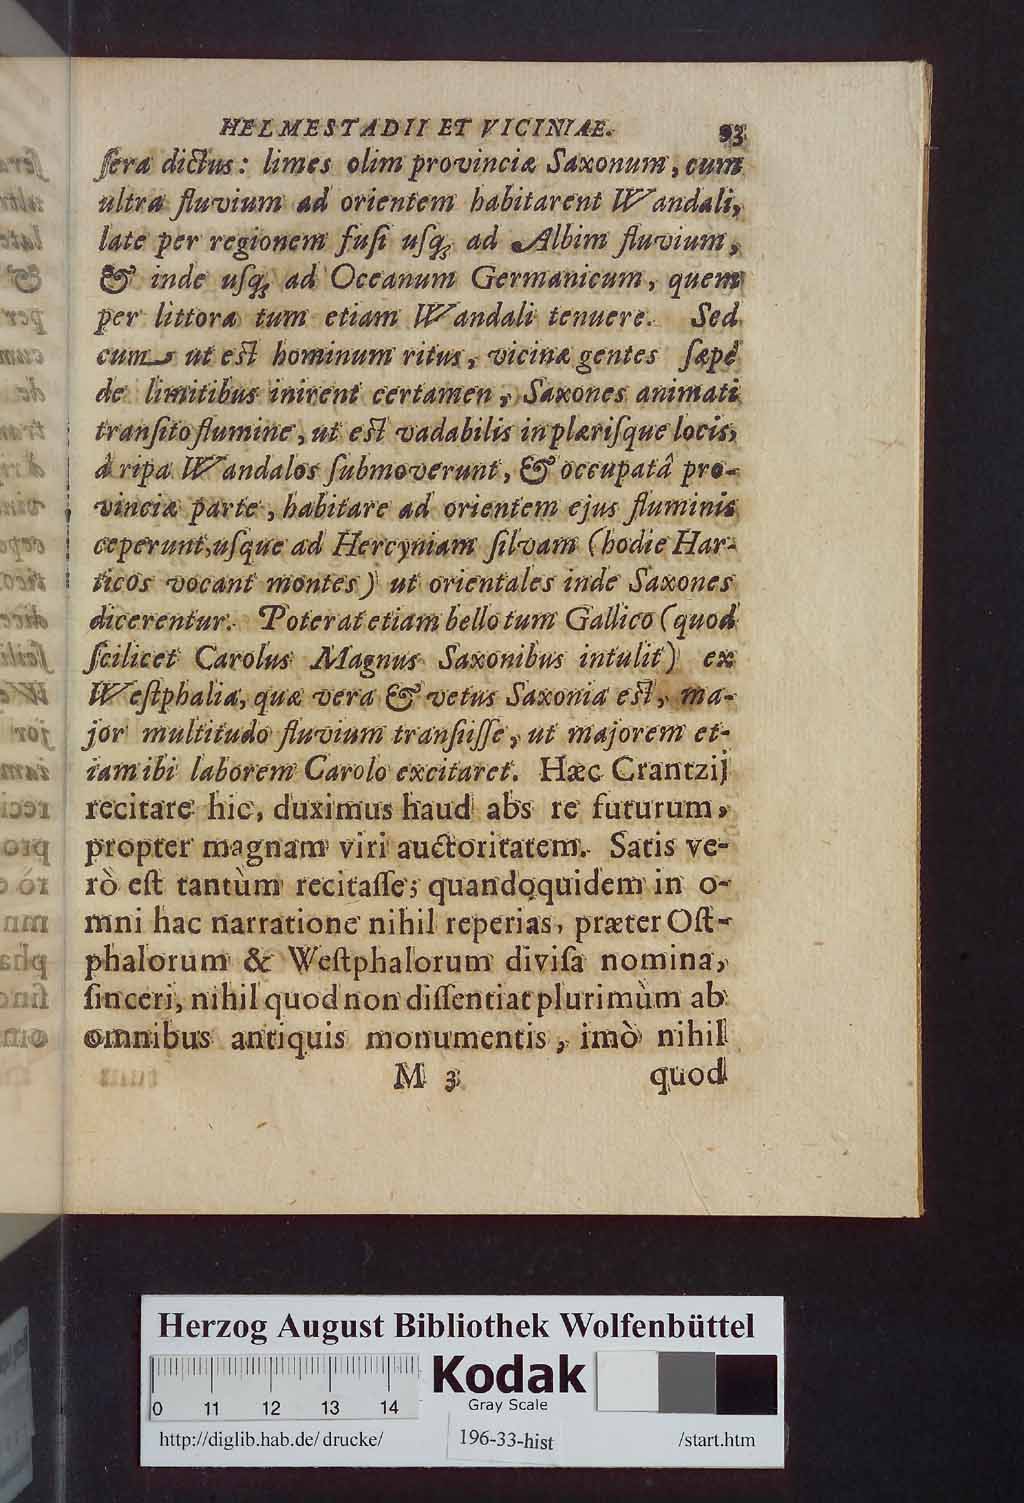 HELMESTADII ET VICINIAE. 93
ſera dictus: limes olim provinciæ Saxonum, cum
ultra fluvium ad orientem habitarent Wandali,
late per regionem fuſi uſq; ad Albim fluvium,
& inde uſq; ad Oceanum Germanicum, quem
per littora tum etiam Wandali tenuere. Sed
cum, ut est hominum ritus, vicinæ gentes ſæpe
de limitibus inirent certamen, Saxones animati
tranſito flumine, ut est vadabilis in plæriſque locis,
à ripa Wandalos ſubmoverunt, & occupatâ pro-
vinciæ parte, habitare ad orientem ejus fluminis
ceperunt, uſque ad Hercyniam ſilvam (hodie Har-
ticos vocant montes) ut orientales inde Saxones
dicerentur. Poterat etiam bello tum Gallico (quod
ſcilicet Carolus Magnus Saxonibus intulit) ex
Weſtphalia, quæ vera & vetus Saxonia est, ma-
jor multitudo fluvium tranſiiſſe, ut majorem et-
iam ibi laborem Carolo excitaret. Hæc Crantzij
recitare hic, duximus haud abs re futurum,
propter magnam viri auctoritatem. Satis ve-
rò eſt tantùm recitaſſe; quandoquidem in o-
mni hac narratione nihil reperias, præter Oſt-
phalorum & Weſtphalorum diviſa nomina,
ſinceri, nihil quod non diſſentiat plurimùm ab
omnibus antiquis monumentis, imò nihil
M 3 quod
Herzog August Bibliothek Wolfenbüttel
0 11 12 13 14
Kodak
Gray Scale
http://diglib.hab.de/drucke/ 196-33-hist /start.htm